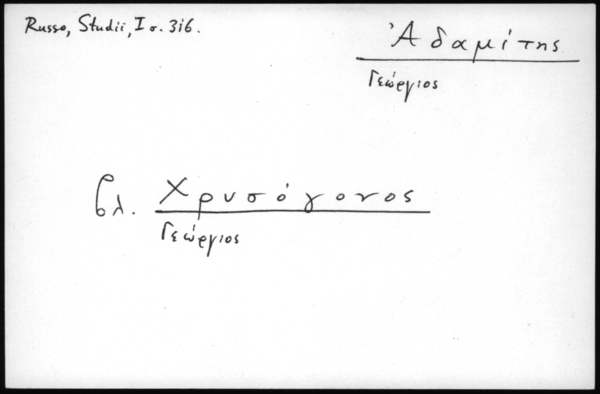 Russo, Studii, I σ. 316.
Ἀδαμίτης
Γεώργιος
βλ. Χρυσόγονος
Γεώργιος